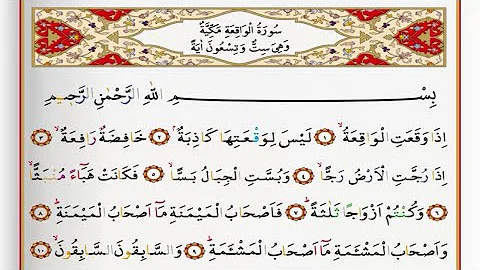 سُورَةُ الْوَاقِعَةِ مَكِّيَّةٌ
وَهِيَ سِتٌّ وَتِسْعُونَ اٰيَةً
بِسْمِ اللهِ الرَّحْمٰنِ الرَّحٖيمِ
اِذَا وَقَعَتِ الْوَاقِعَةُۙ ﴿١﴾ لَيْسَ لِوَقْعَتِهَا كَاذِبَةٌۢ ﴿٢﴾ خَافِضَةٌ رَافِعَةٌۙ ﴿٣﴾
اِذَا رُجَّتِ الْاَرْضُ رَجًّاۙ ﴿٤﴾ وَبُسَّتِ الْجِبَالُ بَسًّاۙ ﴿٥﴾ فَكَانَتْ هَبَٓاءً مُنْبَثًّاۙ
﴿٦﴾ وَكُنْتُمْ اَزْوَاجًا ثَلٰثَةًۜ ﴿٧﴾ فَاَصْحَابُ الْمَيْمَنَةِ مَٓا اَصْحَابُ الْمَيْمَنَةِۜ ﴿٨﴾
وَاَصْحَابُ الْمَشْـَٔمَةِ مَٓا اَصْحَابُ الْمَشْـَٔمَةِۜ ﴿٩﴾ وَالسَّابِقُونَ السَّابِقُونَۙ ﴿١٠﴾